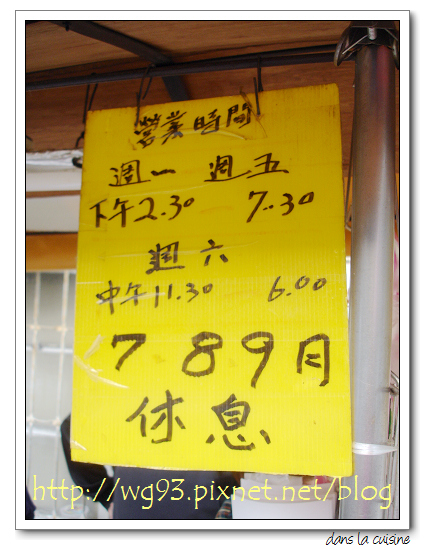 dans la cuisine
營業時間
週一 週五
下午2.30 7.30
週六
中午11.30 6.00
7 8 9月
休息
http://wg93.pixnet.net/blog
dans la cuisine